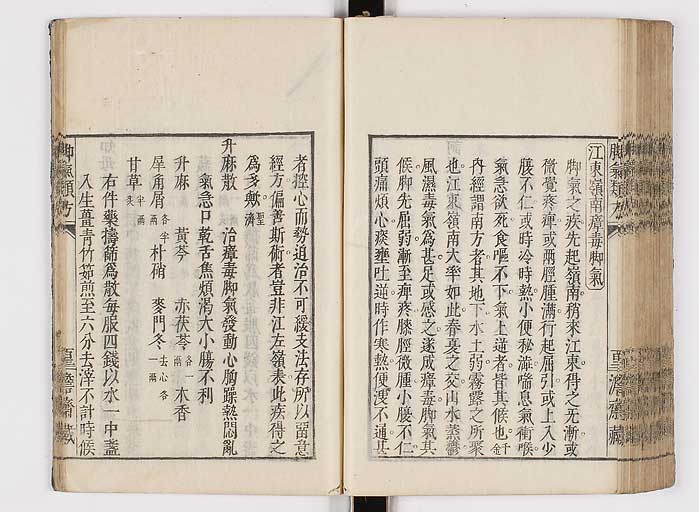 江東嶺南瘴毒脚氣
脚氣之疾先起嶺南稍來江東得之无漸或
微覺疼痺或兩脛腫滿行起屈弱或上入少
腹不仁或時冷時熱小便秘澁喘息氣衝喉
氣急欲死食嘔不下氣上逆者皆其候也千金
内經謂南方者其地下水土弱霧露之所聚
也江東嶺南大率如此春夏之交山水蒸鬱
風濕毒氣爲甚足或感之遂成瘴毒脚氣其
候脚先屈弱漸至痺疼膝脛微腫小腹不仁
頭痛煩心痰壅吐逆時作寒熱便溲不通甚
者攻心而勢迫治不可緩支法存所以留意
經方偏善斯術者豈非江左嶺表此疾得之
爲多歟聖濟
升麻散 治瘴毒脚氣發動心胸躁熱悶亂
氣急口乾舌焦煩渴大小腸不利
升麻 黄芩 赤茯苓各一兩 木香
犀角屑各半兩 朴硝 麥門冬去心各一兩
甘草半兩炙
右件藥擣篩爲散每服四錢以水一中盞
入生薑青竹茹煎至六分去滓不計時候
脚氣類方
聖濟齋藏